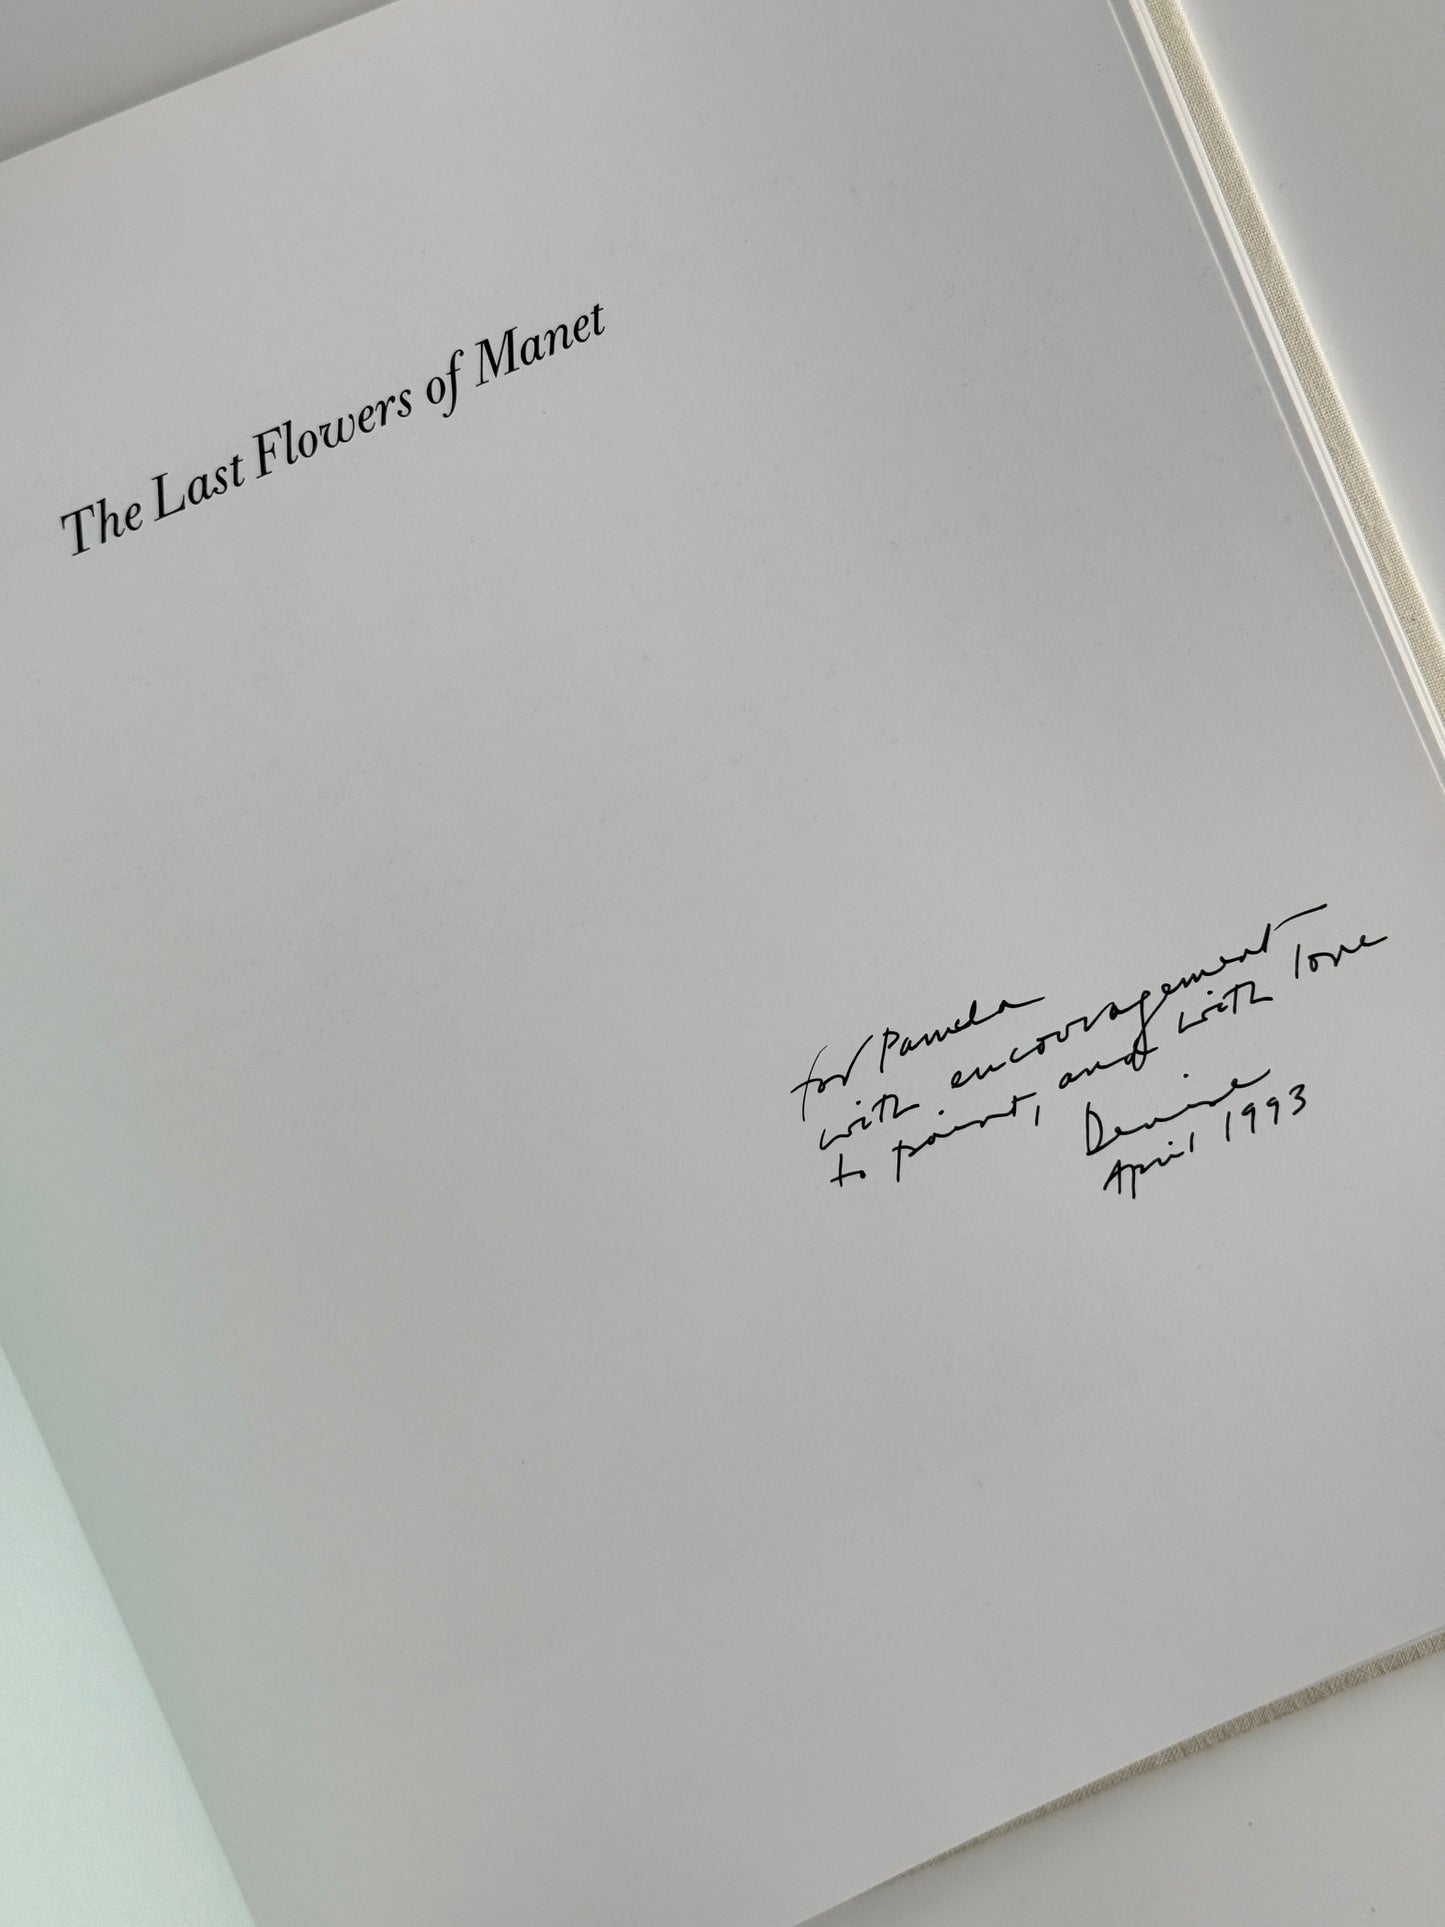 The Last Flowers of Manet
for Pamela
with encouragement
to paint, and with love
Denise
April 1993